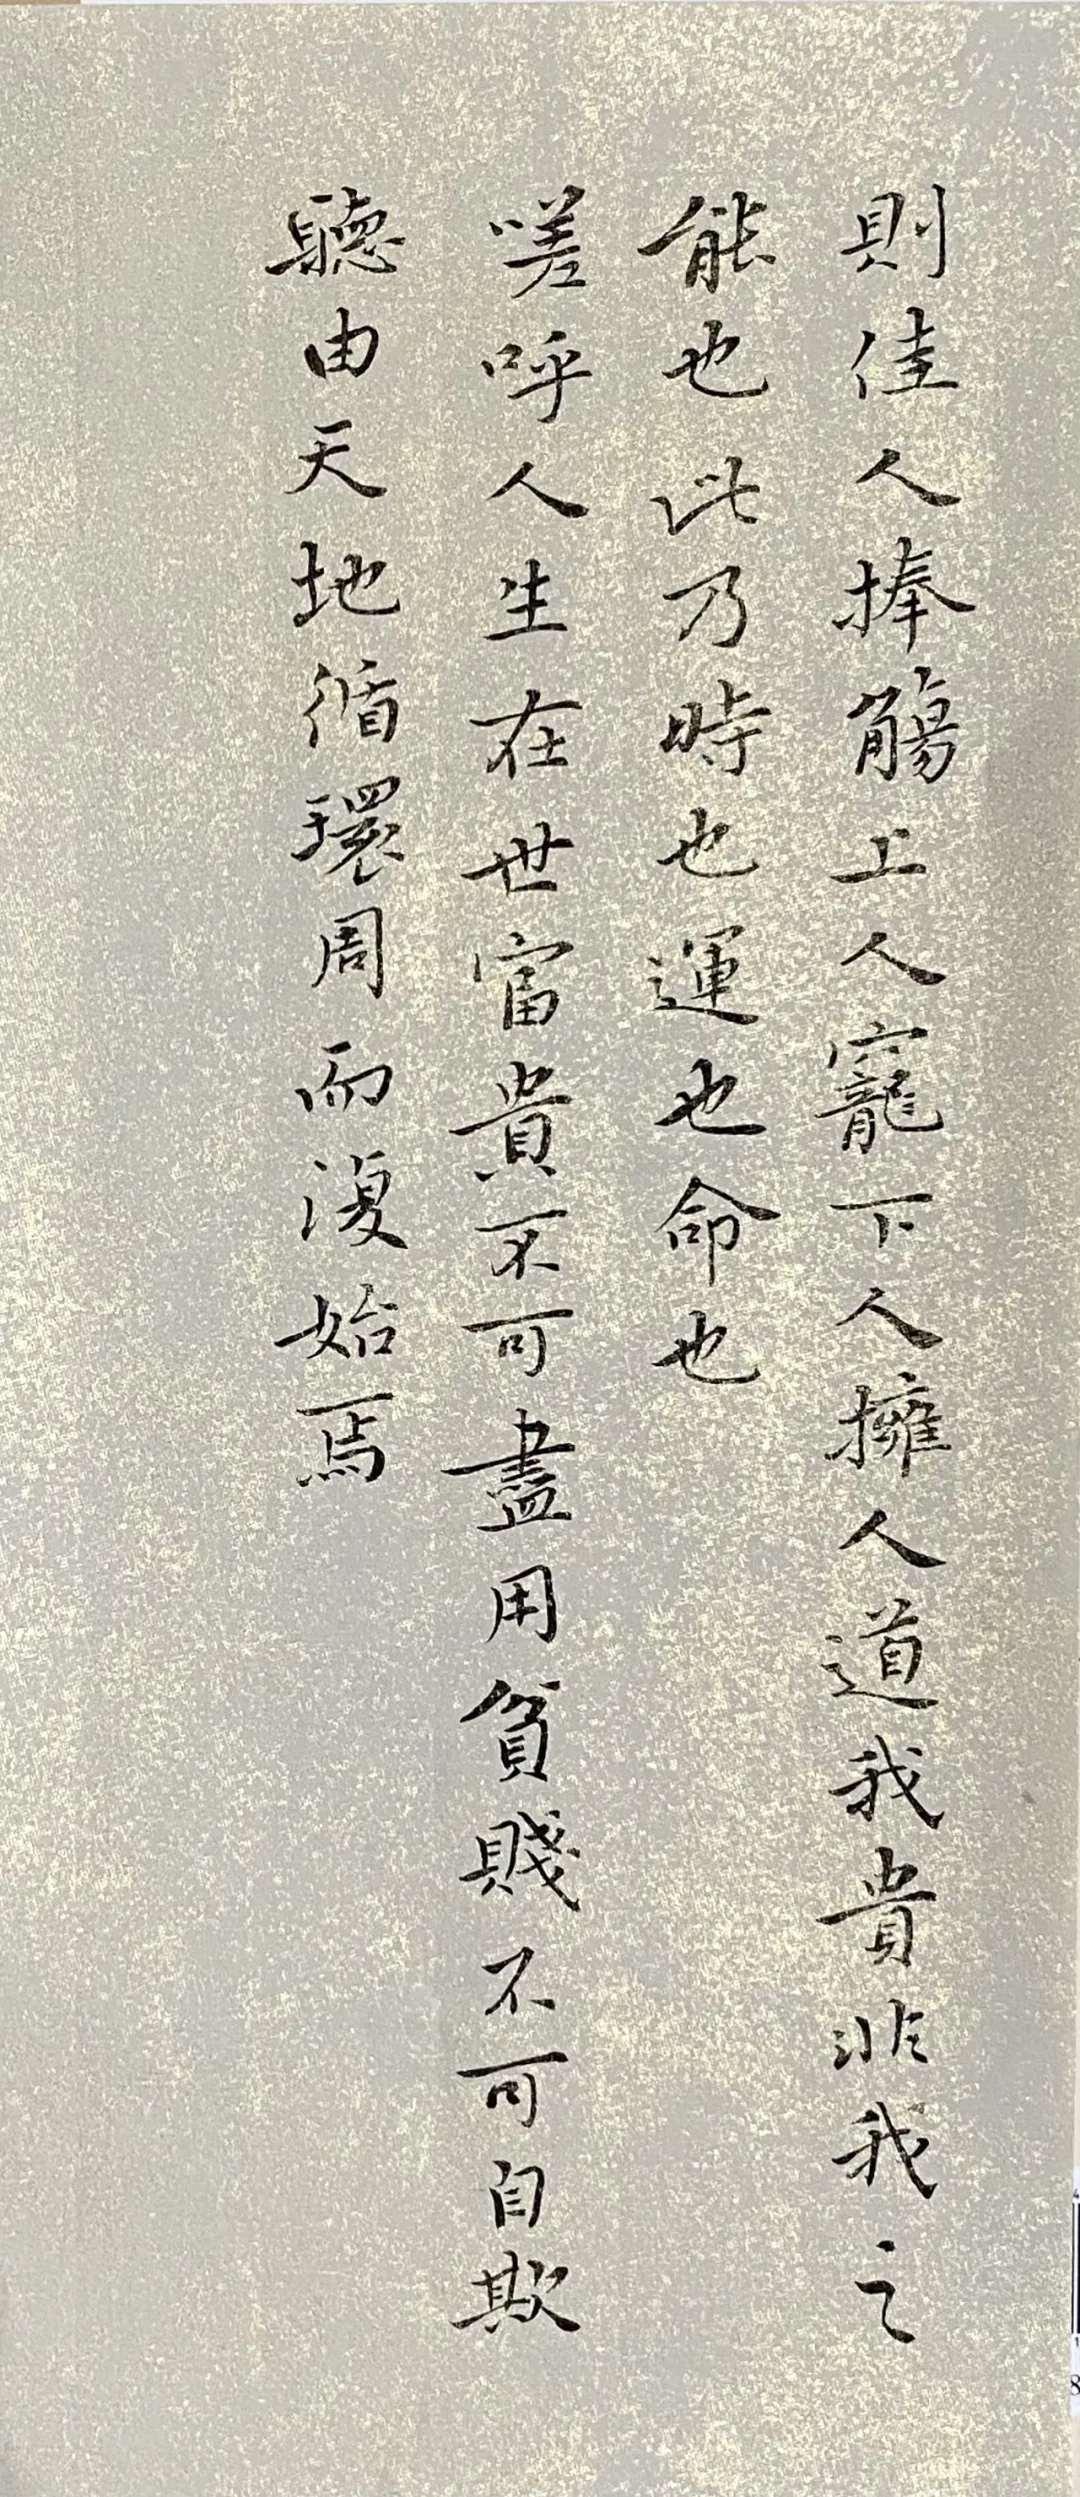 則佳人捧觴上人寵下人擁人道我貴非我之
能也此乃時也運也命也
嗟呼人生在世富貴不可盡用貧賤不可自欺
聽由天地循環周而復始焉
8